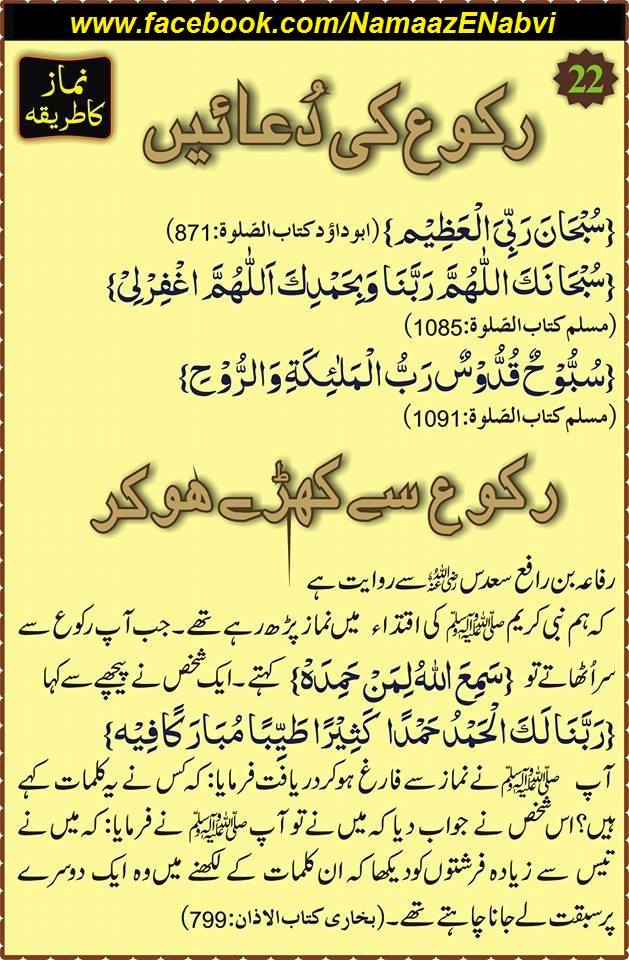 www.facebook.com/NamaazENabvi
22
نماز
کا طریقہ
رکوع کی دُعائیں
{سُبْحَانَ رَبِّیَ الْعَظِیْم} (ابو داؤد کتاب الصّلوۃ:871)
{سُبْحَانَكَ اللّٰهُمَّ رَبَّنَا وَبِحَمْدِكَ اَللّٰهُمَّ اغْفِرْ لِیْ}
(مسلم کتاب الصّلوۃ:1085)
{سُبُّوْحٌ قُدُّوْسٌ رَبُّ الْمَلٰئِكَةِ وَالرُّوْحِ}
(مسلم کتاب الصّلوۃ:1091)
رکوع سے کھڑے ھو کر
رفاعہ بن رافع سعدس رضی اللہ عنہ سے روایت ہے
کہ ہم نبی کریم ﷺ کی اقتداء میں نماز پڑھ رہے تھے۔ جب آپ رکوع سے
سر اُٹھاتے تو {سَمِعَ اللهُ لِمَنْ حَمِدَهْ} کہتے۔ ایک شخص نے پیچھے سے کہا
{رَبَّنَا لَكَ الْحَمْدُ حَمْدًا كَثِيْرًا طَيِّبًا مُبَارَكًا فِيْه}
آپ ﷺ نے نماز سے فارغ ہو کر دریافت فرمایا: کہ کس نے یہ کلمات کہے
ہیں؟ اس شخص نے جواب دیا کہ میں نے تو آپ ﷺ نے فرمایا: کہ میں نے
تیس سے زیادہ فرشتوں کو دیکھا کہ ان کلمات کے لکھنے میں وہ ایک دوسرے
پر سبقت لے جانا چاہتے تھے۔ (بخاری کتاب الاذان:799)